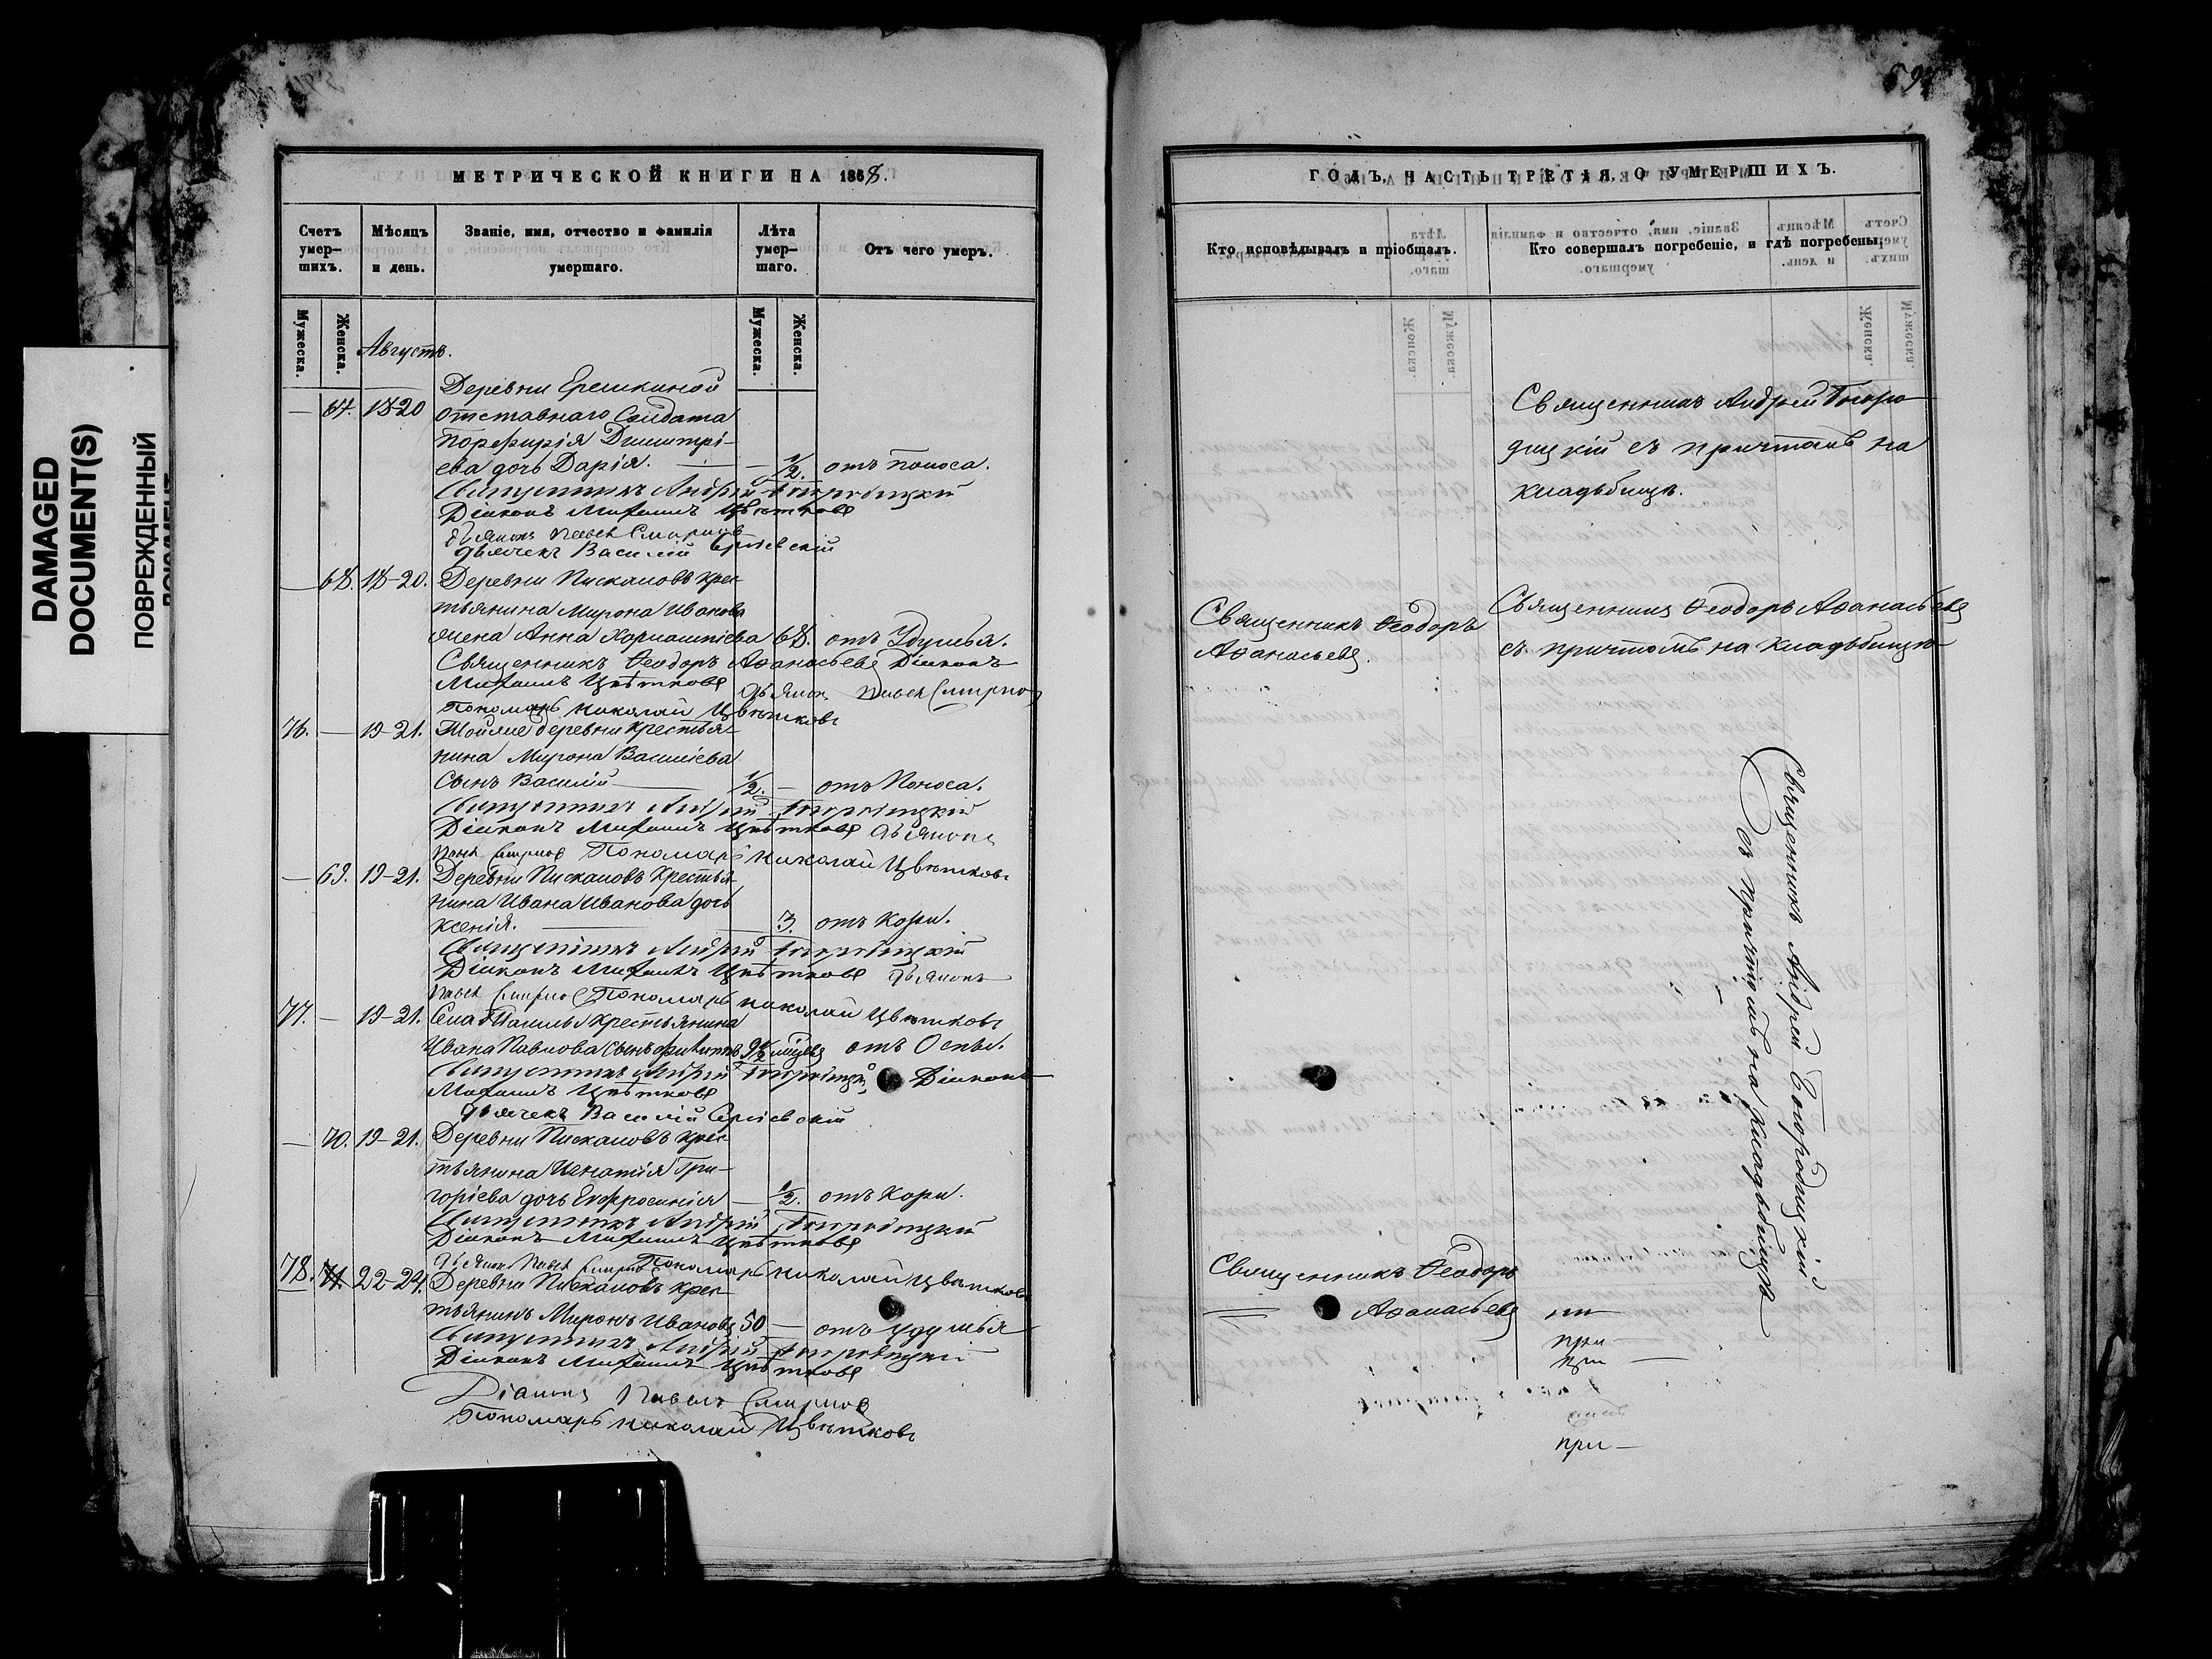 DAMAGED
DOCUMENT(S)
ПОВРЕЖДЕННЫЙ
МЕТРИЧЕСКОЙ КНИГИ НА 1868.
Счетъ умер-шихъ.
Мѣсяцъ и день.
Званіе, имя, отчество и фамилія умершаго.
Лѣта умер-шаго.
Отъ чего умеръ.
Мужеска.
Женска.
Мужеска.
Женска.
Августъ.
Деревни Ерешкиной
— 67. 18-20 отставнаго Солдата
Порфирія Димитрі-
ева дочь Дарія. — — 1/2. отъ поноса.
Священникъ Андрей Богородицкій
Діаконъ Михаилъ Цвѣтковъ
Діаконъ Павелъ Смирновъ
Дьячекъ Василій Сергіевскій
— 68. 18-20. Деревни Пискаловъ крес-
тьянина Мирона Иванова
жена Анна 68. отъ Удушья.
Священникъ Ѳеодоръ Аѳанасьевъ Діаконъ
Михаилъ Цвѣтковъ Діаконъ Павелъ Смирновъ
Пономарь Николай Цвѣтковъ
76. — 19-21. Тойже деревни крестья-
нина Мирона Василіева
Сынъ Василій — 1/2. — отъ Поноса.
Священникъ Андрей Богородицкій
Діаконъ Михаилъ Цвѣтковъ Діаконъ
Павелъ Смирновъ Пономарь Николай Цвѣтковъ
— 69. 19-21. Деревни Пискаловъ Крестья-
нина Ивана Иванова дочь
Ксенія. — 3. отъ Кори.
Священникъ Андрей Богородицкій
Діаконъ Михаилъ Цвѣтковъ Діаконъ
Павелъ Смирновъ Пономарь Николай Цвѣтковъ
77. — 19-21. Села Крестьянина
Ивана Павлова Сынъ отъ Оспы.
Священникъ Андрей Богородицкій Діаконъ
Михаилъ Цвѣтковъ
Дьячекъ Василій Сергіевскій
— 70. 19-21. Деревни Пискаловъ крес-
тьянина Игнатія Гри-
горіева дочь Евфросинія — 1/2. отъ Кори.
Священникъ Андрей Богородицкій
Діаконъ Михаилъ Цвѣтковъ
Діаконъ Павелъ Смирновъ Пономарь Николай Цвѣтковъ
78. 71. 22-24. Деревни Пискаловъ крес-
тьянинъ Миронъ Ивановъ 50 — отъ удушья
Священникъ Андрей Богородицкій
Діаконъ Михаилъ Цвѣтковъ
Діаконъ Павелъ Смирновъ
Пономарь Николай Цвѣтковъ
ГОДЪ, ЧАСТЬ ТРЕТІЯ, О УМЕРШИХЪ.
Кто исповѣдывалъ и пріобщалъ.
Кто совершалъ погребеніе, и гдѣ погребены.
Священникъ Андрей Богоро-
дицкій съ причтомъ на
кладбищѣ.
Священникъ Ѳеодоръ
Аѳанасьевъ.
Священникъ Ѳеодоръ Аѳанасьевъ
съ причтомъ на кладбищѣ
Священникъ Андрей Богородицкій
съ причтомъ на кладбищѣ
Священникъ Ѳеодоръ
Аѳанасьевъ
при
при —